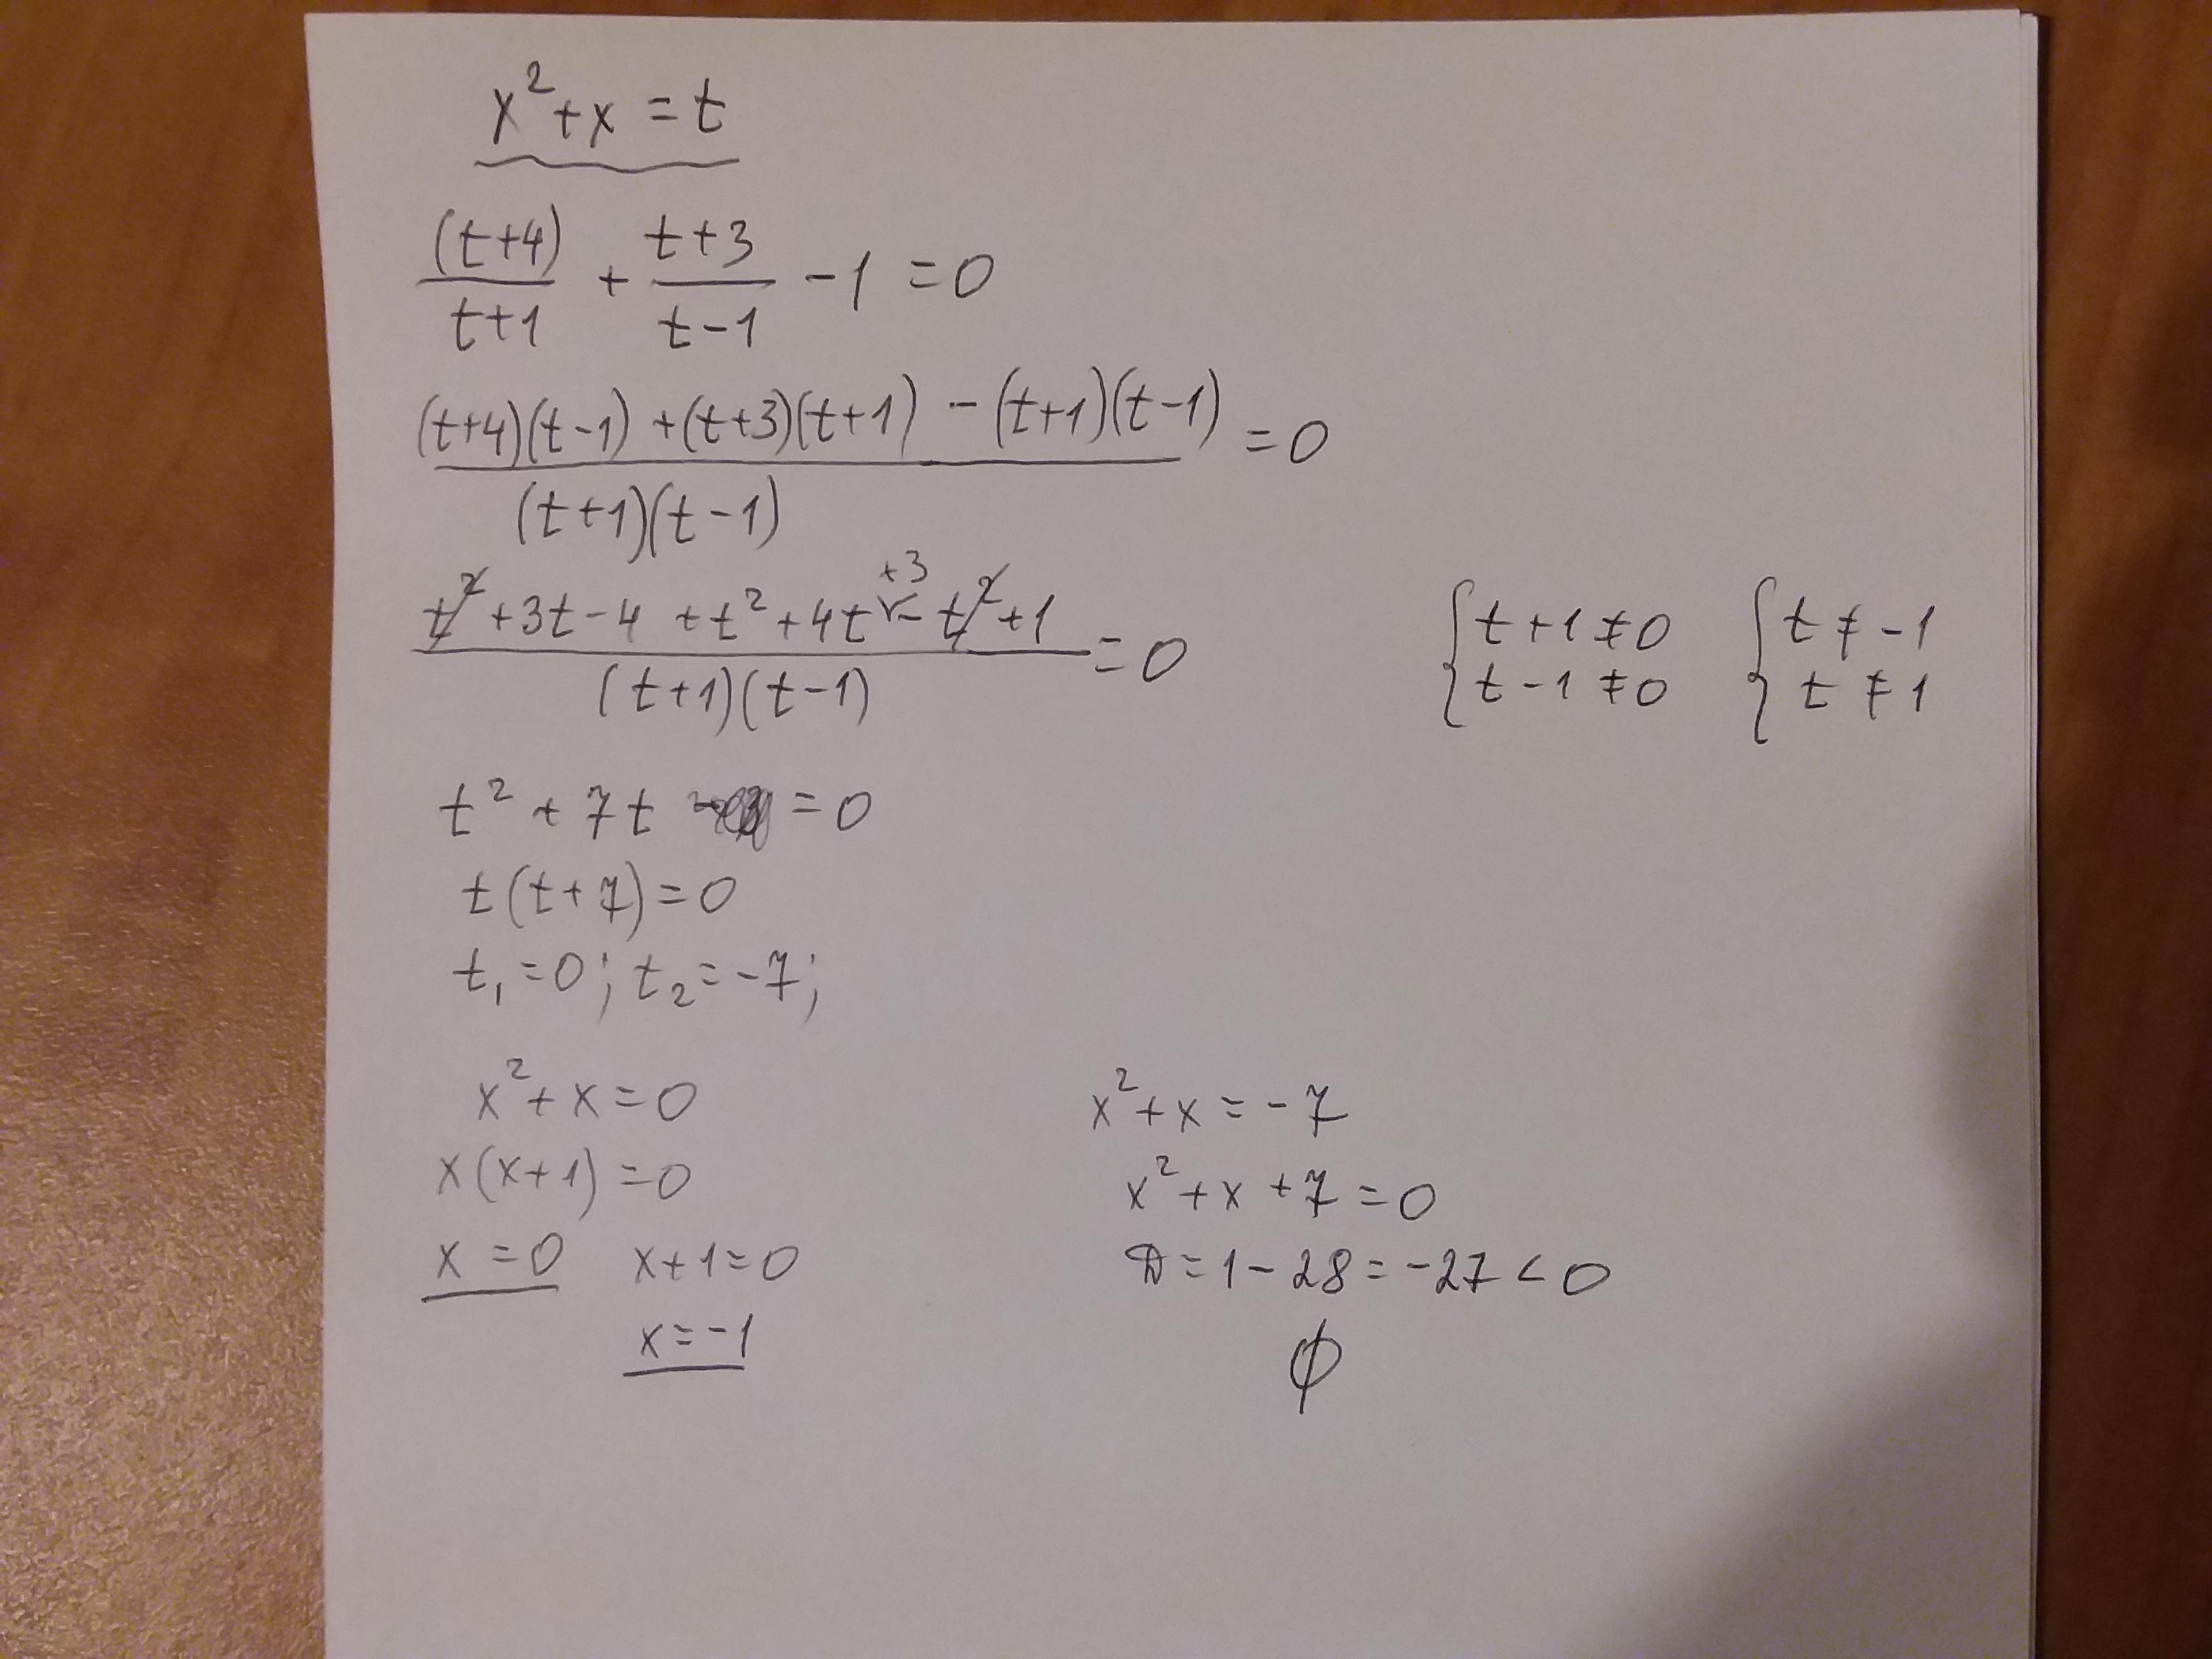 x² + x = t
(t+4)/(t+1) + (t+3)/(t-1) - 1 = 0
((t+4)(t-1) + (t+3)(t+1) - (t+1)(t-1))/((t+1)(t-1)) = 0
(t² + 3t - 4 + t² + 4t +3 - t² + 1)/((t+1)(t-1)) = 0
{ t+1 ≠ 0 { t ≠ -1
t-1 ≠ 0 t ≠ 1
t² + 7t = 0
t(t+7) = 0
t₁ = 0; t₂ = -7;
x² + x = 0
x(x+1) = 0
x = 0 x+1 = 0
x = -1
x² + x = -7
x² + x + 7 = 0
D = 1 - 28 = -27 < 0
∅